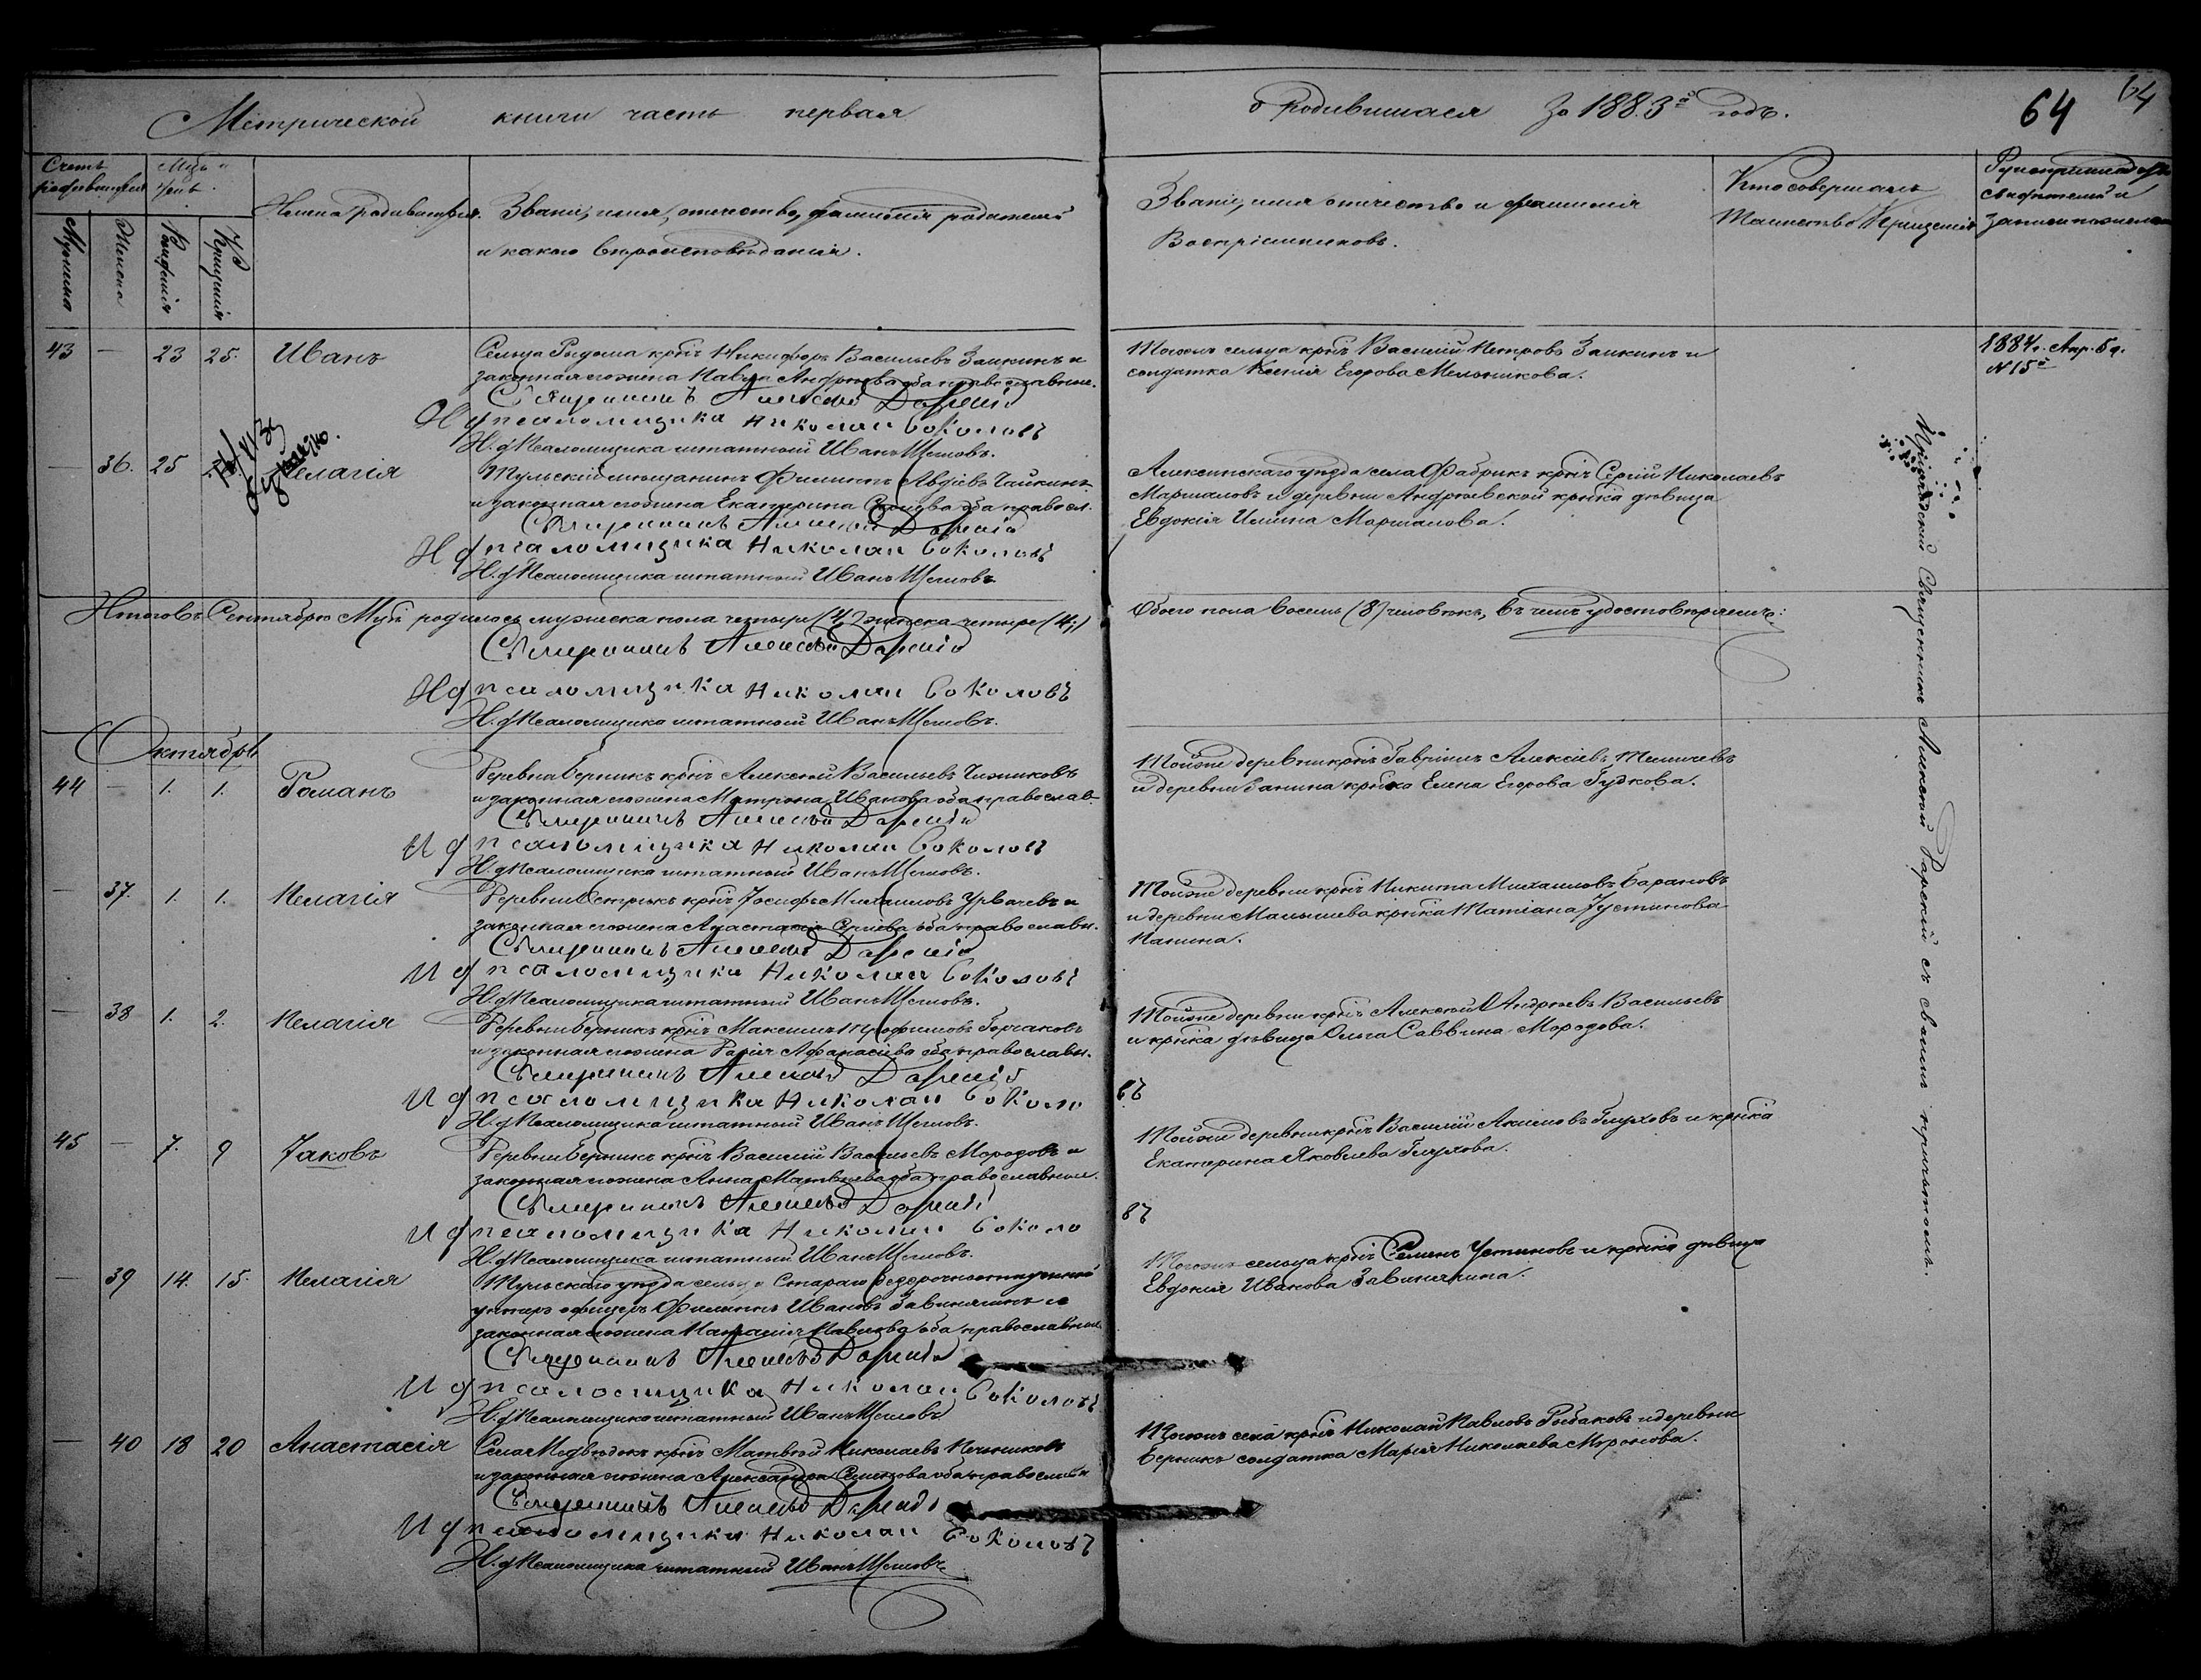 Метрической книги часть первая
о родившихся за 1883й годъ.
64
64
Счетъ родившихся
Муж. пола
Женска
Рожденія
Крещенія
Имена родившихся.
Званіе, имя, отчество, фамилія родителей
и какого вѣроисповѣданія.
Званіе, имя отчество и фамилія
Воспріемниковъ.
Кто совершалъ
Таинство Крещенія
Рукоприкладство
свидѣтелей и
записи по желан
43 — 23 25. Иванъ
Сельца крнъ Никифоръ Васильевъ Заикинъ и
законная его жена Андреева оба православные.
Священникъ Алексѣй Дарскій
И д псаломщика Николай Соколовъ
И. д. Псаломщика штатный Иванъ Щегловъ.
Тогожъ сельца крнъ Василій Петровъ Заикинъ и
солдатка Ксенія Егорова Мельникова.
1884 г. Апр. 5 д.
№ 15й
— 36. 25 Пелагія
Тульскій мѣщанинъ Филиппъ Авдіевъ Чайкинъ
и законная его жена Екатерина оба правосл.
Священникъ Алексѣй Дарскій
И д псаломщика Николай Соколовъ
И. д. Псаломщика штатный Иванъ Щегловъ
Алексинскаго уѣзда села Фабрикъ крнъ Сергій Николаевъ
Маршаловъ и деревни Андреевской крнка дѣвица
Евдокія Ильина Маршалова.
Итого въ Сентябрѣ Мцѣ родилось мужеска пола четыре (4) женска четыре (4)
Обоего пола восемь (8) человѣкъ, въ чемъ удостовѣряемъ:
Священникъ Алексѣй Дарскій
И д псаломщика Николай Соколовъ
И. д. Псаломщика штатный Иванъ Щегловъ.
Октябрь
44 — 1. 1. Романъ
Деревни Берникъ крнъ Алексѣй Васильевъ Чижиковъ
и законная его жена Матрона Иванова оба православ-
Священникъ Алексѣй Дарскій
И д псаломщика Николай Соколовъ
И. д. Псаломщика штатный Иванъ Щегловъ.
Тойже деревни крнъ Гавріилъ Алексіевъ
и деревни Ганина крнка Елена Егорова Гудкова.
— 37. 1. 1. Пелагія
Деревни крнъ Іосифъ Михаиловъ и
законная его жена Анастасія Сергіева оба православн.
Священникъ Алексѣй Дарскій
И д псаломщика Николай Соколовъ
И. д. Псаломщика штатный Иванъ Щегловъ.
Тойже деревни крнъ Никита Михаиловъ Барановъ
и деревни Малышева крнка Татіана Іустинова
Панина.
— 38 1. 2. Пелагія
Деревни Берникъ крнъ Максимъ Трофимовъ Горчаковъ
и законная его жена Дарія Афанасіева оба православн.
Священникъ Алексѣй Дарскій
И д псаломщика Николай Соколо
въ
И. д. Псаломщика штатный Иванъ Щегловъ.
Тойже деревни крнъ Алексѣй Андреевъ Васильевъ
и крнка дѣвица Ольга Саввина Морозова.
45 — 7. 9 Іаковъ
Деревни Берникъ крнъ Василій Васильевъ Морозовъ и
законная его жена Анна Матвѣева оба православные.
Священникъ Алексѣй Дарскій
И д псаломщика Николай Соколо
въ
И. д. Псаломщика штатный Иванъ Щегловъ.
Тойже деревни крнъ Василій Акимовъ Глуховъ и крнка
Екатерина Яковлева Глухова.
— 39 14. 15. Пелагія
Тульскаго уѣзда сельца Стараго безсрочноотпускной
унтеръ офицеръ Филиппъ Ивановъ и
законная его жена Павлова оба православные
Священникъ Алексѣй Дарскій
И д псаломщика Николай Соколовъ
И. д. Псаломщика штатный Иванъ Щегловъ
Тогожъ сельца крнъ Семенъ Устиновъ и крнка дѣвица
Евдокія Иванова
— 40 18 20 Анастасія
Села Медвѣдокъ крнъ Матвѣй Николаевъ
и законная его жена Александра Семенова оба православн
Священникъ Алексѣй Дарскій
И д псаломщика Николай Соколовъ
И. д. Псаломщика штатный Иванъ Щегловъ
Тогожъ села крнъ Николай Павловъ Рыбаковъ и деревни
Берникъ солдатка Марія Николаева Миронова.
Приходскій Священникъ Алексѣй Дарскій съ своимъ причтомъ.